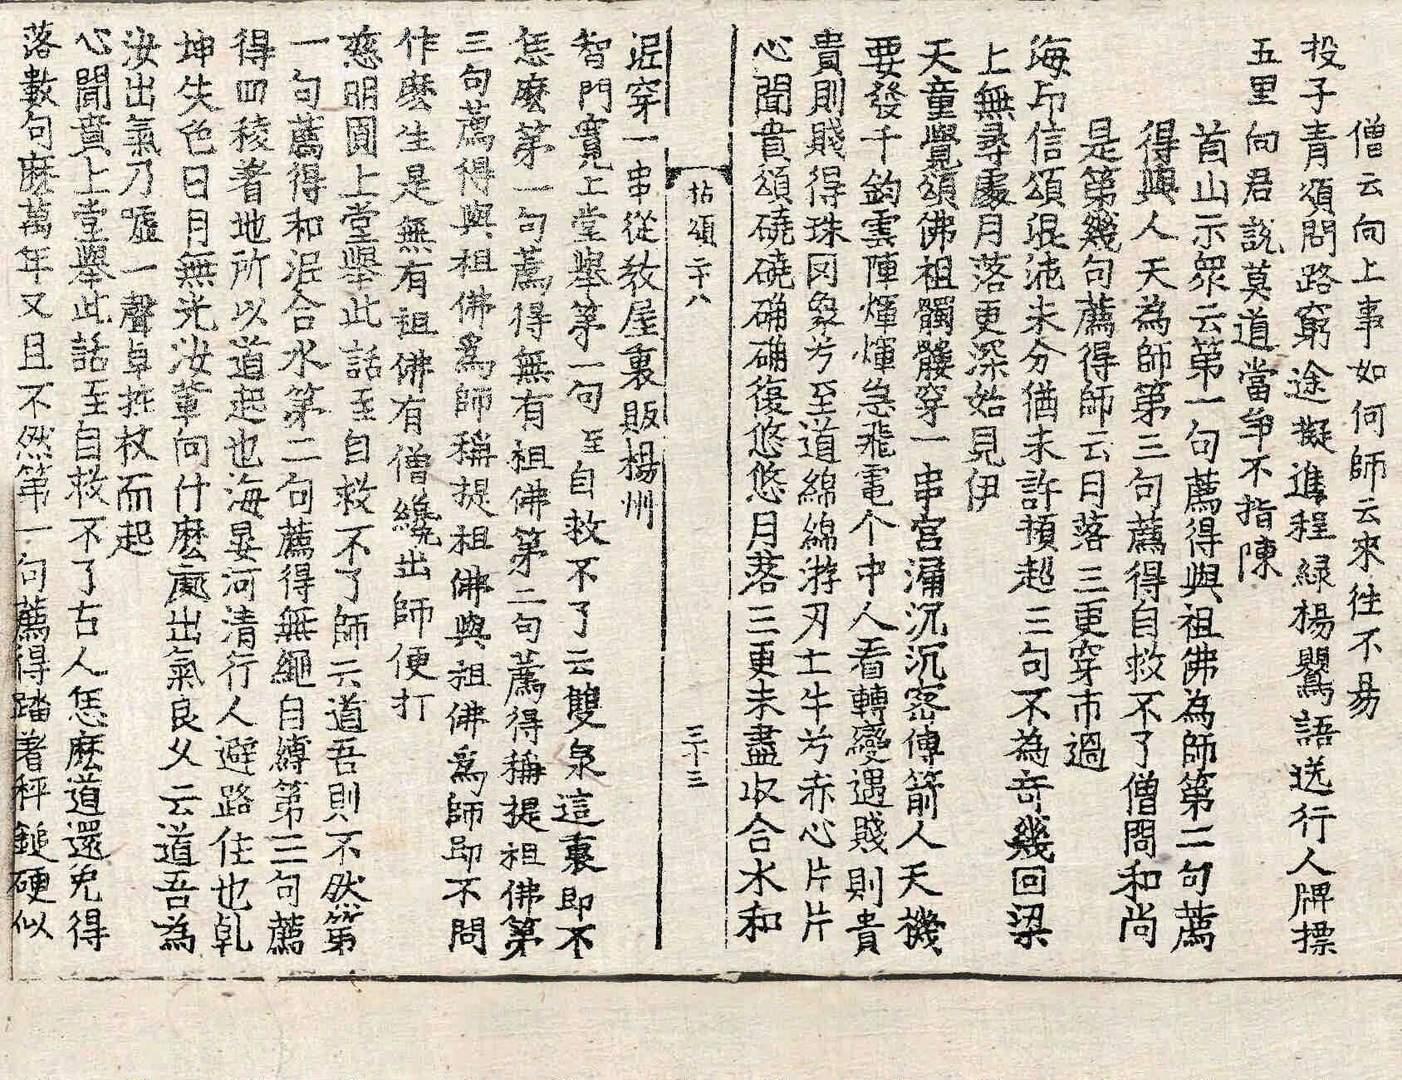 僧云向上事如何師云來徃不易
投子青頌問路窮途擬進程緑楊鸎語送行人牌摽
五里向君說莫道當爭不指陳
首山示衆云第一句薦得與祖佛為師第二句薦
得與人天為師第三句薦得自救不了僧問和尚
是第幾句薦得師云月落三更穿市過
海印信頌混沌未分猶未許頓超三句不為奇幾回梁
上無尋處月落更深始見伊
天童覺頌佛祖髑髏穿一串宮漏沉沉密傳箭人天機
要發千鈞雲陣煇煇急飛電个中人看轉變遇賤則貴
貴則賤得珠罔象兮至道綿綿游刃士牛兮赤心片片
心聞賁頌磽磽确确復悠悠月落三更未盡収合水和
拈頌二十八
三十三
泥穿一串從教屋裏販楊州
智門寛上堂舉第一句至自救不了云雙泉這裏即不
恁麽第一句薦得無有祖佛第二句薦得稱提祖佛第
三句薦得與祖佛爲師稱提祖佛與祖佛爲師即不問
作麽生是無有祖佛有僧纔出師便打
慈明圓上堂舉此話至自救不了師云道吾則不然第
一句薦得和泥合水第二句薦得無繩自縛第三句薦
得四稜著地所以道起也海晏河清行人避路住也乹
坤失色日月無光汝輩向什麽處出氣良久云道吾為
汝出氣乃嘘一聲卓拄杖而起
心聞賁上堂舉此話至自救不了古人恁麽道還免得
落數句麽萬年又且不然第一句薦得踏著秤鎚硬似